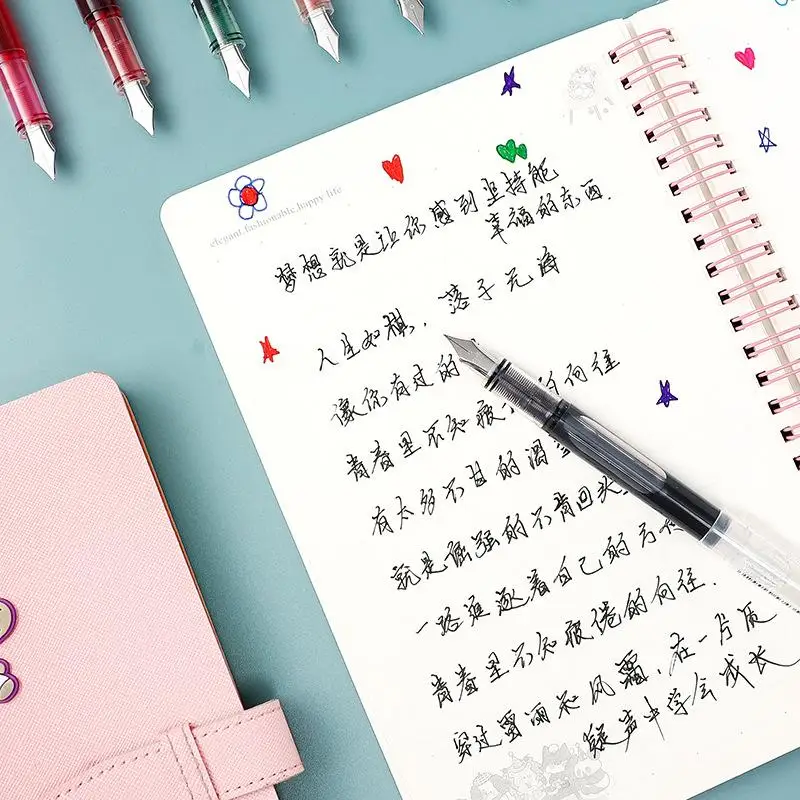 elegant.fashionable.happy life
梦想就是让你感到坚持能
幸福的东西.
人生如棋，落子无悔
像你有过的
向往
背着里不知疲
有太多不甘的渴
就是倔强的不肯回头
一路追逐着自己的方
背着里不知疲倦的向往.
穿过雷雨和风霜，在一片质
疑声中学会成长